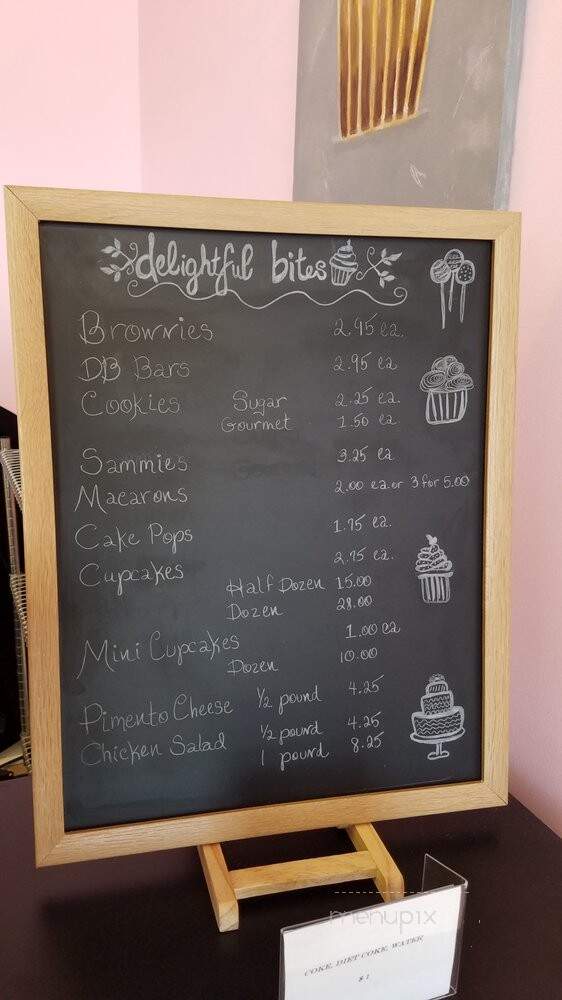 delightful bites
Brownies 2.95 ea.
DB Bars 2.95 ea
Cookies Sugar 2.25 ea.
Gourmet 1.50 ea
Sammies 3.25 ea
Macarons 2.00 ea. or 3 for 5.00
Cake Pops 1.75 ea.
Cupcakes 2.75 ea.
Half Dozen 15.00
Dozen 28.00
Mini Cupcakes 1.00 ea
Dozen 10.00
Pimento Cheese 1/2 pound 4.25
Chicken Salad 1/2 pound 4.25
1 pound 8.25
menupix
COKE, DIET COKE, WATER
$1